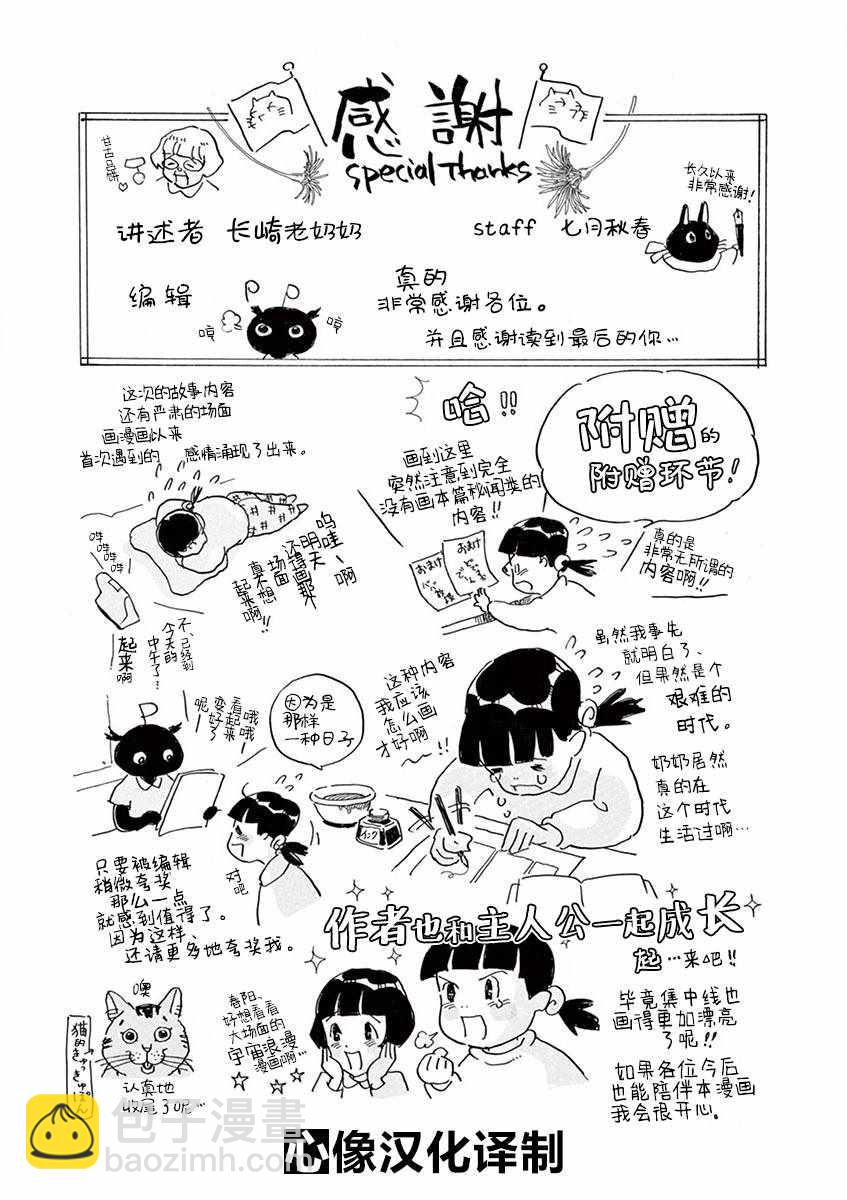 感謝
Special Thanks
长久以来
非常感谢！
讲述者 长崎老奶奶
staff 七月秋春
编辑
哼
哼
真的
非常感谢各位。
并且感谢读到最后的你…
附赠的
附赠环节！
真的是
非常无所谓的
内容啊！！
哈！！
画到这里
突然注意到完全
没有画本篇秘闻类的
内容！！
おまけ
おまけ
这次的故事内容
还有严肃的场面
画漫画以来
首次遇到的 感情涌现了出来。
呜哇~啊
明天
还得画那
场面
真不想
起来啊！！
哔
哔
哔
哔
不，已经到
今天的
中午了…
起来啊
虽然我事先
就明白了、
但果然是个
艰难的
时代。
奶奶居然
真的在
这个时代
生活过啊…
这种内容
我应该
怎么画
才好啊
~！！
インク
因为是
那样
一种日子
看起来
变好了
呢
哦哦
对吧
只要被编辑
稍微夸奖
那么一点
就感到值得了。
因为这样、
还请更多地夸奖我。
作者也和主人公一起成长
起…来吧！！
毕竟集中线也
画得更加漂亮
了呢！！
如果各位今后
也能陪伴本漫画
我会很开心。
春阳、
好想看看
大场面的
宇宙浪漫
漫画啊…
噢
猫的きゅっきゅぽん
认真地
收尾了呢…
包子漫畫
baozimh.com
心像汉化译制